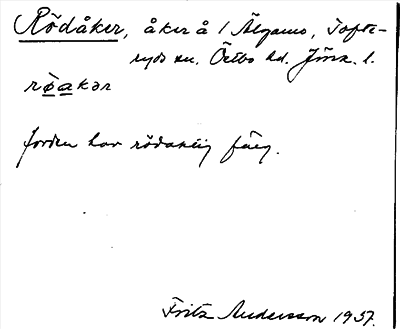 Rödåker, åker å 1 Älganäs, Tofte-
ryds sn. Östbo hd. Jönk. l.
röakər
Jorden har rödaktig färg.
Fritz Andersson 1937.